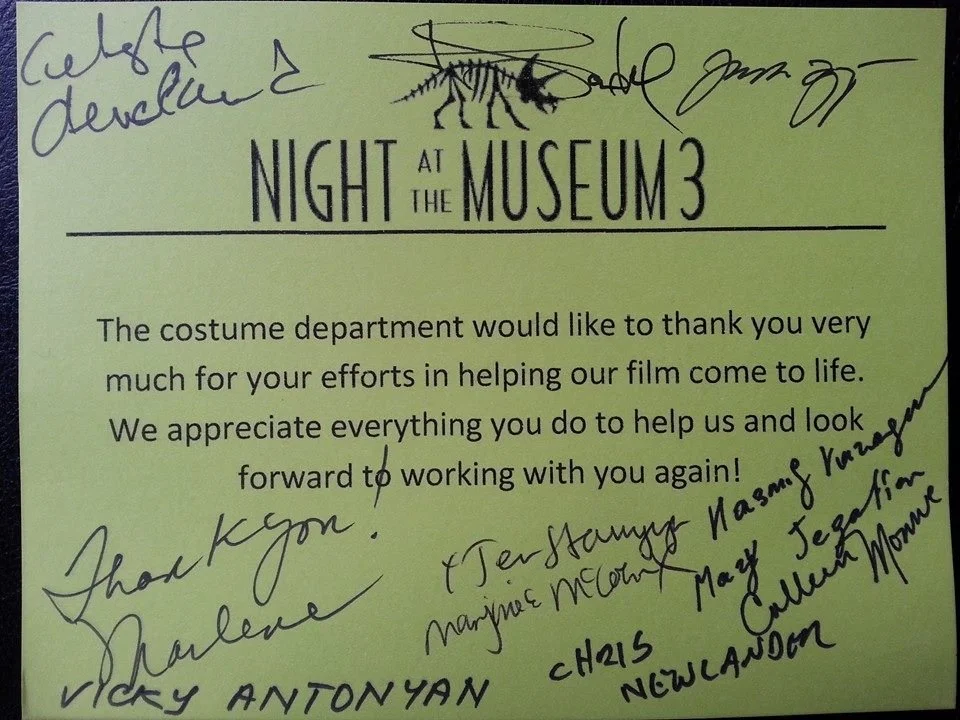 NIGHT AT THE MUSEUM 3
The costume department would like to thank you very
much for your efforts in helping our film come to life.
We appreciate everything you do to help us and look
forward to working with you again!
Thank you!
Marlene
VICKY ANTONYAN
Marjorie McCown
Mary Tegatian
CHRIS
NEWLANDER